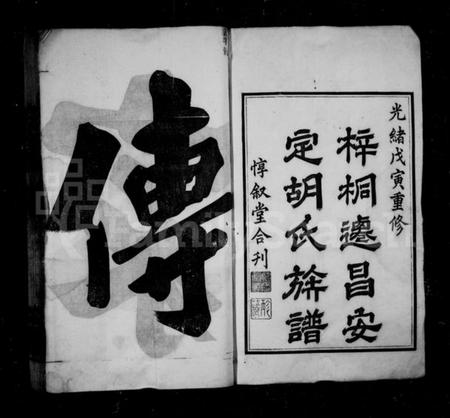 光緒戊寅重修
梓桐遷昌安
定胡氏族譜
惇敘堂合刊
傳